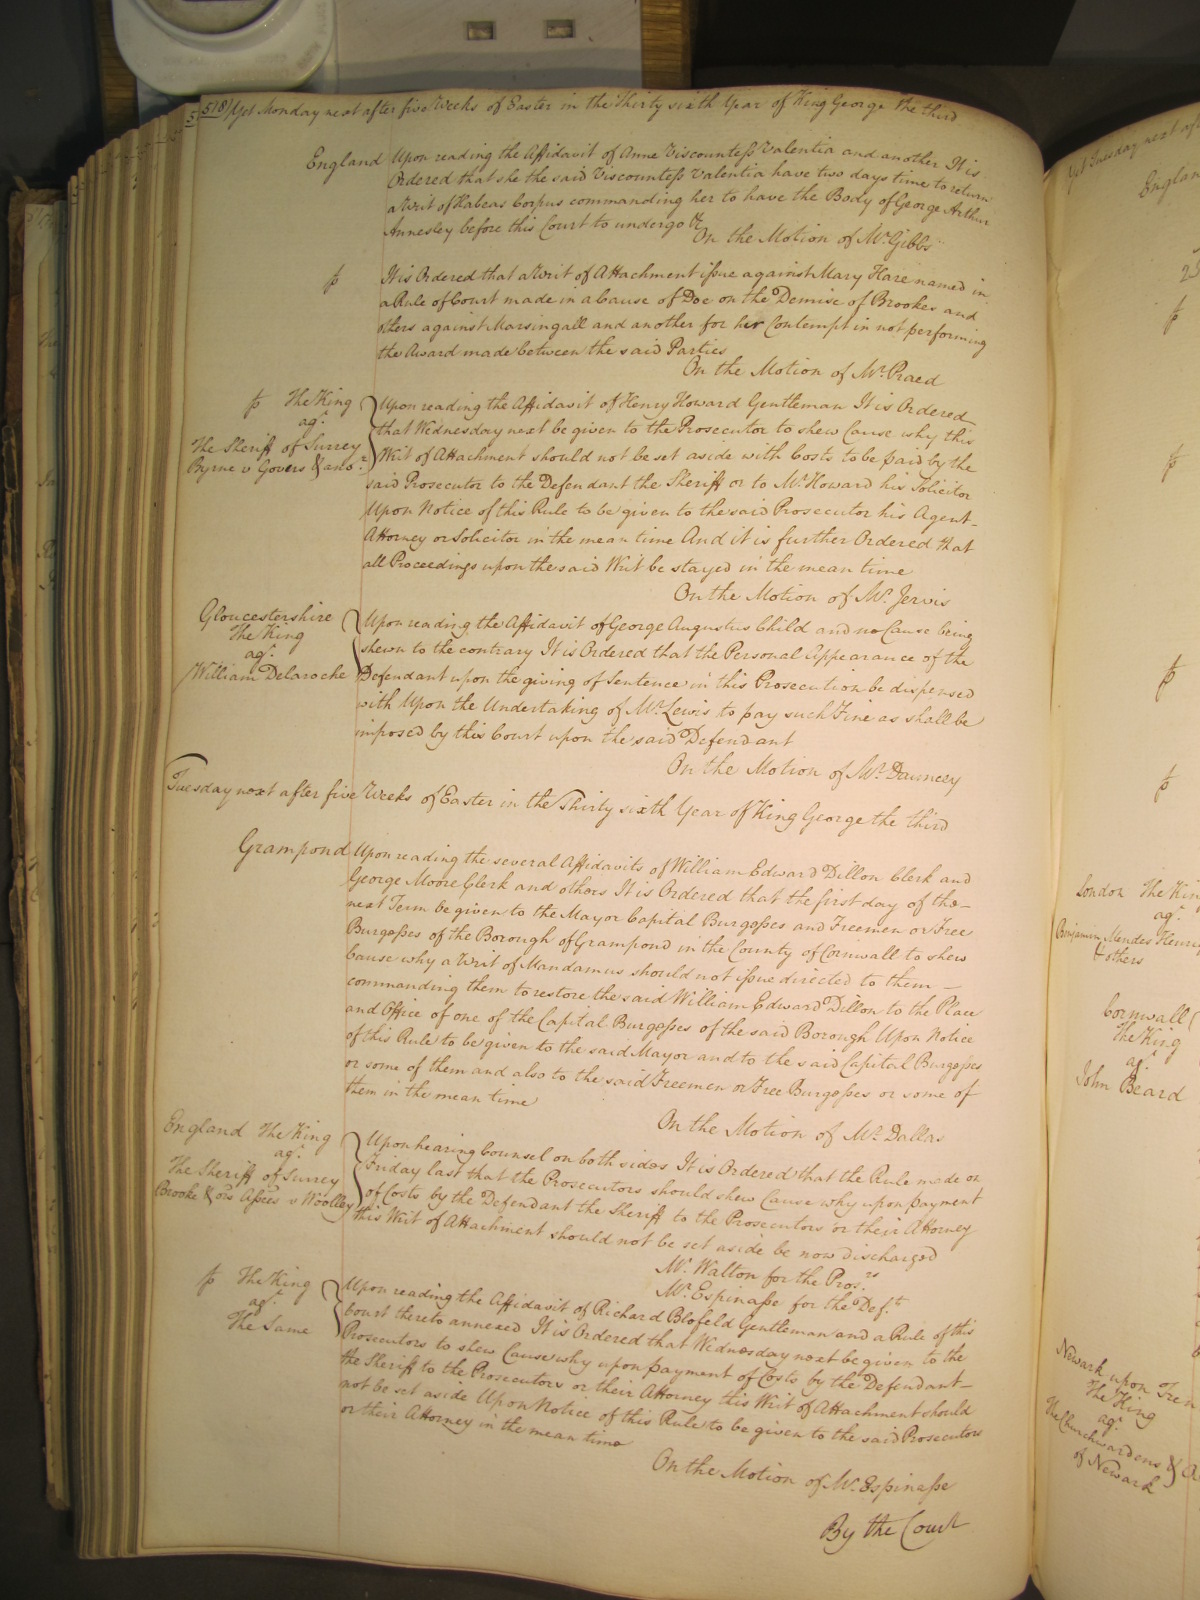 518) Yet Monday next after five Weeks of Easter in the Thirty sixth Year of King George the third
England Upon reading the Affidavit of Anne Viscountess Valentia and another It is
Ordered that she the said Viscountess Valentia have two days time to return
a Writ of Habeas Corpus commanding her to have the Body of George Arthur
Annesley before this Court to undergo &c
On the Motion of Mr. Gibbs
It is Ordered that a Writ of Attachment issue against Mary Hare named in
a Rule of Court made in a Cause of Doe on the Demise of Brookes and
others against Marsingall and another for her Contempt in not performing
the Award made between the said Parties
On the Motion of Mr. Praed
The King
agt.
The Sheriff of Surrey
Byrne v Govers & anor.
Upon reading the Affidavit of Henry Howard Gentleman It is Ordered
that Wednesday next be given to the Prosecutor to shew Cause why this
Writ of Attachment should not be set aside with Costs to be paid by the
said Prosecutor to the Defendant the Sheriff or to Mr. Howard his Solicitor
Upon Notice of this Rule to be given to the said Prosecutor his Agent
Attorney or Solicitor in the mean time And it is further Ordered that
all Proceedings upon the said Writ be stayed in the mean time
On the Motion of Mr. Jervis
Gloucestershire
The King
agt.
William Delaroche
Upon reading the Affidavit of George Augustus Child and no Cause being
shewn to the contrary It is Ordered that the Personal Appearance of the
Defendant upon the giving of Sentence in this Prosecution be dispensed
with Upon the Undertaking of Mr. Lewis to pay such Fine as shall be
imposed by this Court upon the said Defendant
On the Motion of Mr. Dauncey
Tuesday next after five Weeks of Easter in the Thirty sixth Year of King George the third
Grampond Upon reading the several Affidavits of William Edward Dillon Clerk and
George Moore Clerk and others It is Ordered that the first day of the
next Term be given to the Mayor Capital Burgesses and Freemen or Free
Burgesses of the Borough of Grampond in the County of Cornwall to shew
Cause why a Writ of Mandamus should not issue directed to them
commanding them to restore the said William Edward Dillon to the Place
and Office of one of the Capital Burgesses of the said Borough Upon Notice
of this Rule to be given to the said Mayor and to the said Capital Burgesses
or some of them and also to the said Freemen or Free Burgesses or some of
them in the mean time
On the Motion of Mr. Dallas
England The King
agt.
The Sheriff of Surrey
Brooke & ors. Assees v Woolley
Upon hearing Counsel on both sides It is Ordered that the Rule made on
Friday last that the Prosecutors should shew Cause why upon payment
of Costs by the Defendant the Sheriff to the Prosecutors or their Attorney
this Writ of Attachment should not be set aside be now discharged
Mr. Walton for the Pros.rs
Mr. Espinasse for the Def.t
The King
agt.
The Same
Upon reading the Affidavit of Richard Blofeld Gentleman and a Rule of this
Court thereto annexed It is Ordered that Wednesday next be given to the
Prosecutors to shew Cause why upon payment of Costs by the Defendant
the Sheriff to the Prosecutors or their Attorney this Writ of Attachment should
not be set aside Upon Notice of this Rule to be given to the said Prosecutors
or their Attorney in the mean time
On the Motion of Mr. Espinasse
By the Court
Yet Tuesday next
London The King
agt.
Benjamin Mendes Henry
& others
Cornwall
The King
agt.
John Beard
Newark upon Tren
The King
agt.
The Churchwardens &
of Newark